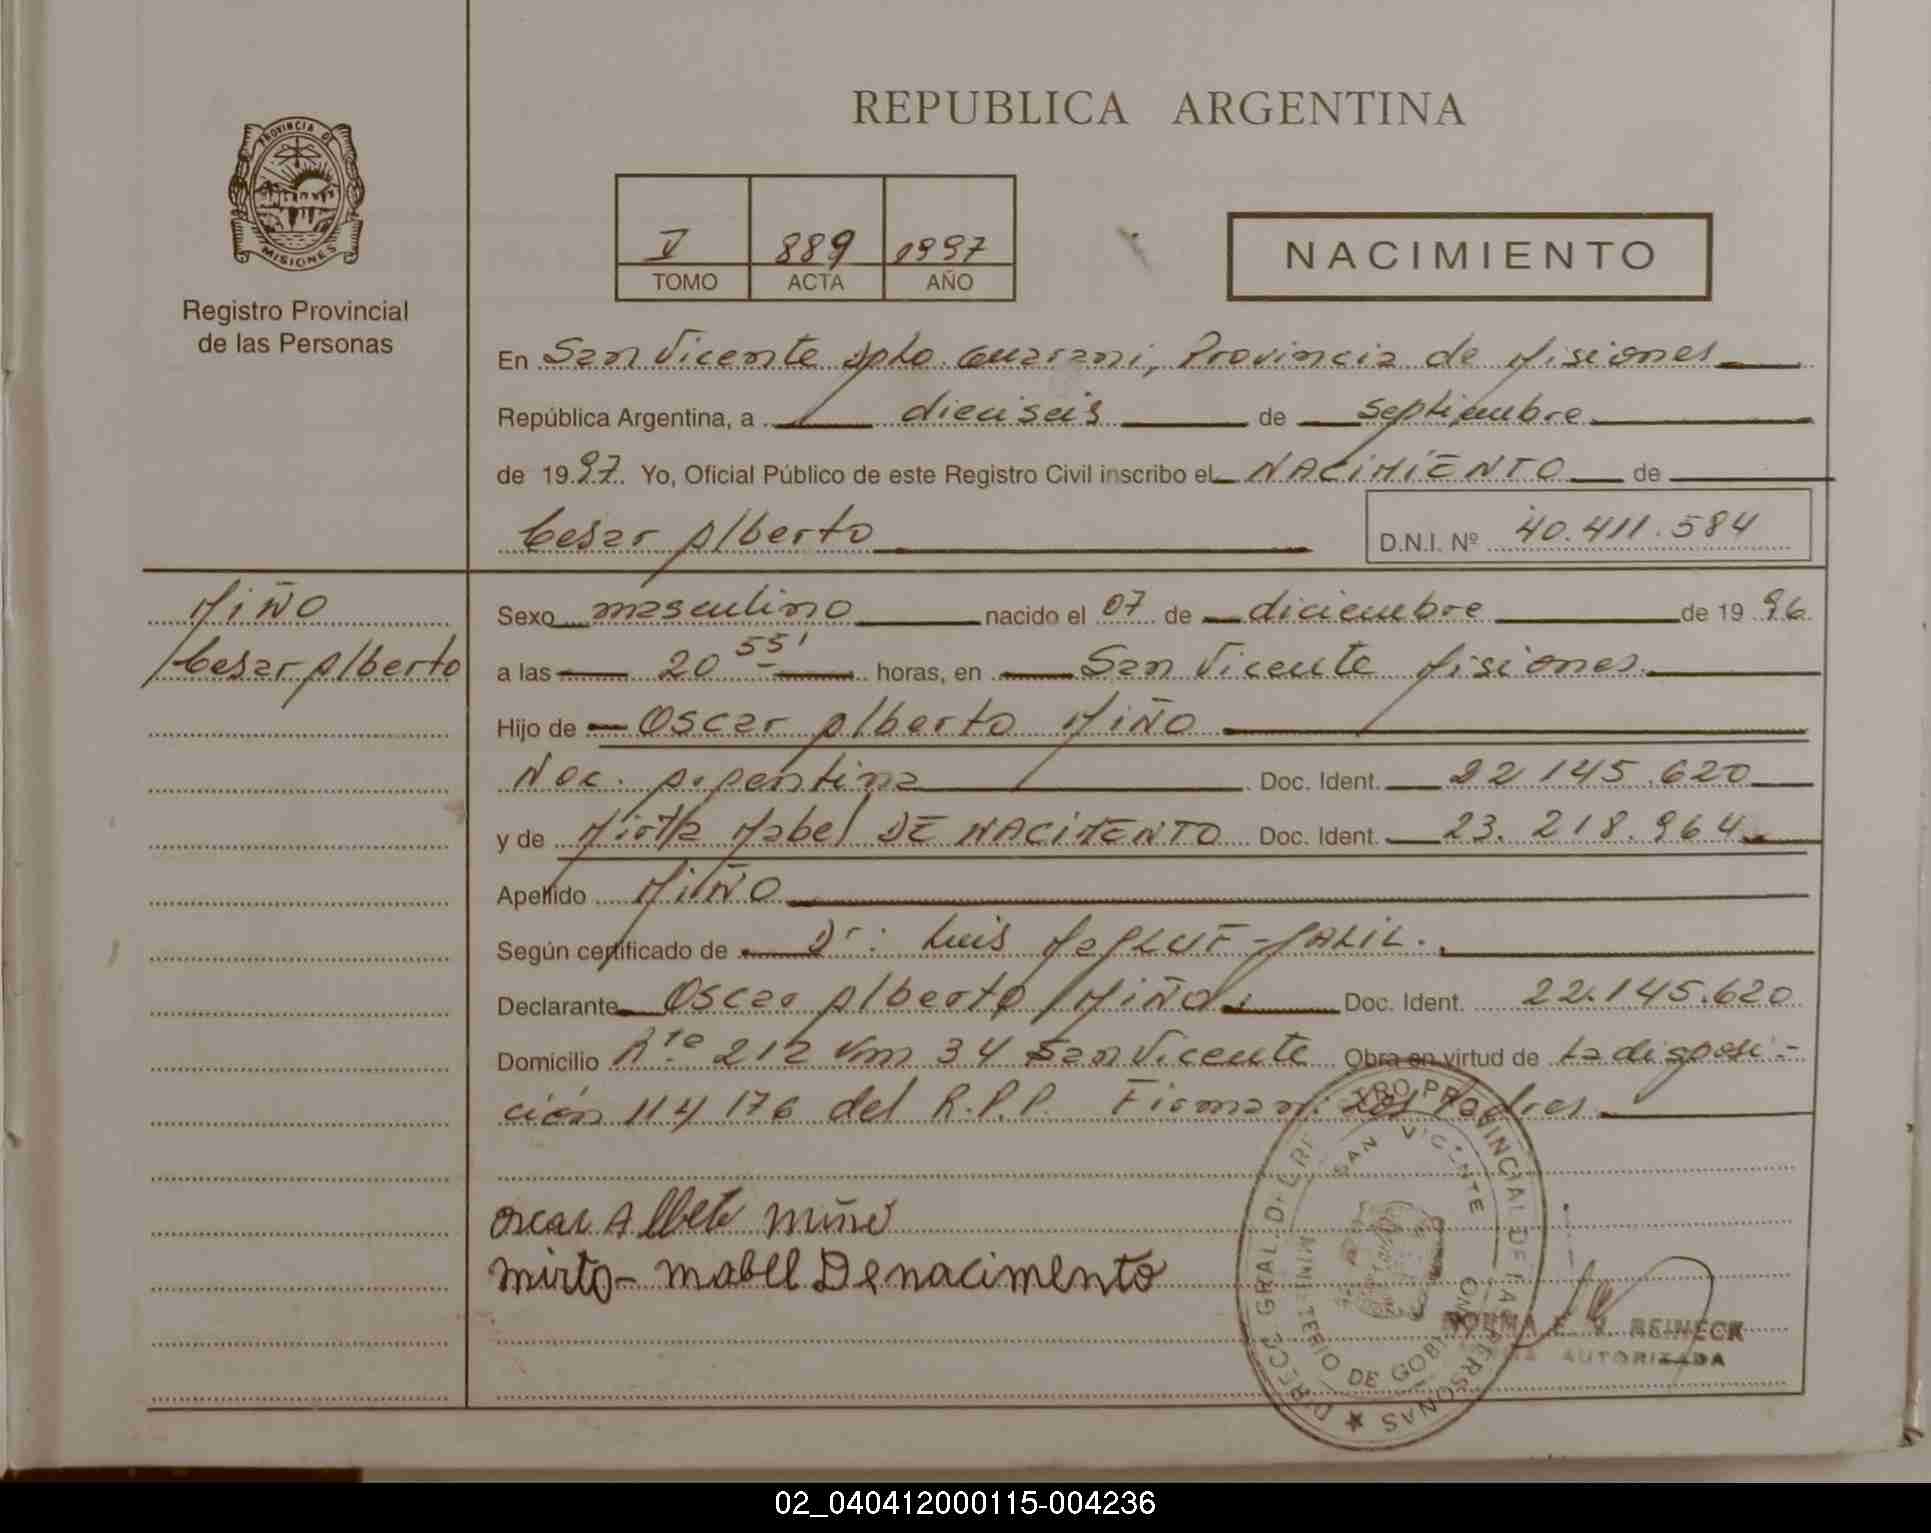 REPUBLICA ARGENTINA
PROVINCIA DE
MISIONES
Registro Provincial
de las Personas
V 889 1997
TOMO ACTA AÑO
NACIMIENTO
En San Vicente Dpto. Guarani, Provincia de Misiones
República Argentina, a dieciseis de septiembre
de 1997. Yo, Oficial Público de este Registro Civil inscribo el NACIMIENTO de
Cesar Alberto D.N.I. Nº 40.411.584
MIÑO
Cesar Alberto
Sexo masculino nacido el 07 de diciembre de 1996
a las 20 55' horas, en San Vicente Misiones
Hijo de Oscar Alberto MIÑO
Nac. Argentina Doc. Ident. 22.145.620
y de Mirta Mabel DE NACIMENTO Doc. Ident. 23.218.964
Apellido MIÑO
Según certificado de Dr: Luis
Declarante Oscar Alberto Miño Doc. Ident. 22.145.620
Domicilio Rta 212 Km 34 San Vicente Obra en virtud de La disposi-
ción 114/176 del R.P.P. Firman: Los Padres
oscar Albeto miño
mirta- mabel De nacimento
DIRECC. GRAL. DEL REGISTRO PROVINCIAL DE LAS PERSONAS
SAN VICENTE
MINISTERIO DE GOBIERNO
NORMA E. REINECK
AUTORIZADA
02_040412000115-004236